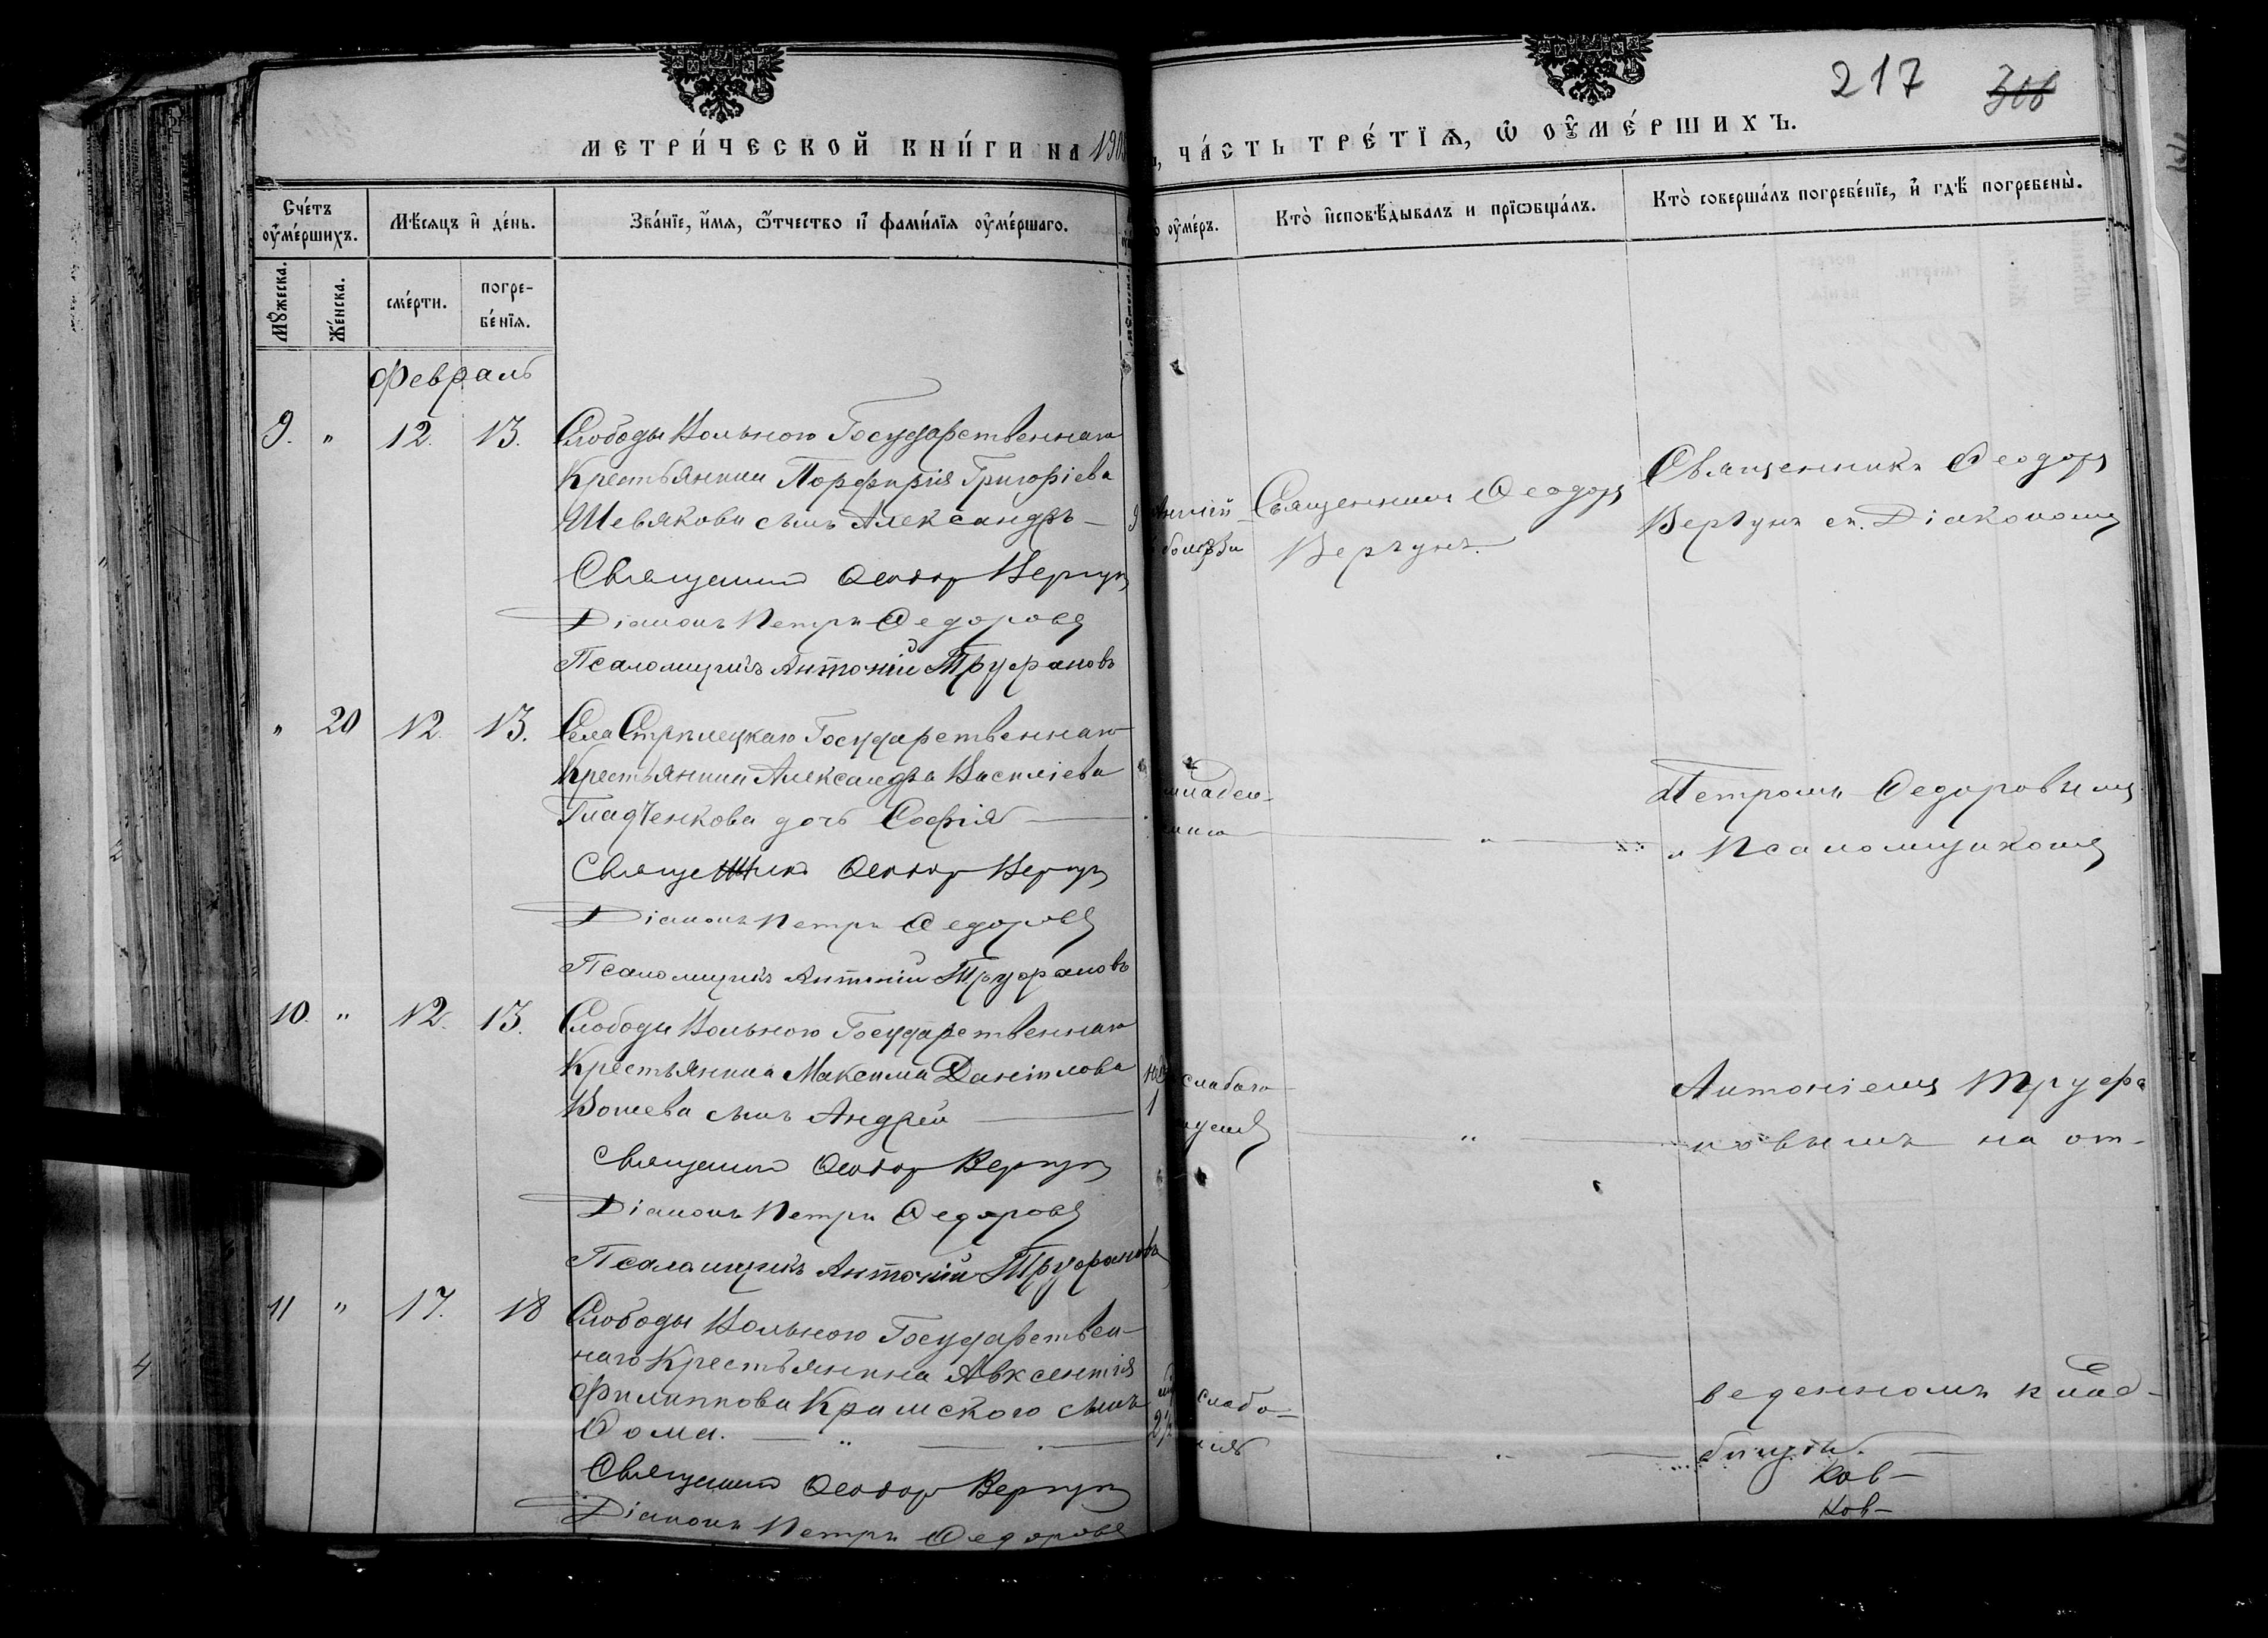 МЕТРИ́ЧЕСКОЙ КНИ́ГИ НА 190
ЧА́СТЬ ТРЕ́ТІѦ, Ѡ ОУМЕ́РШИХЪ.
217
306
Сче́тъ оуме́ршихъ.
Мѣ́сяцъ и де́нь.
Зва́нїе, и́мя, ѻ҆́тчество и҆ фами́лїя оуме́ршаго.
оуме́ръ.
Кто̀ и҆сповѣ́дывалъ и прїѡбща́лъ.
Кто̀ соверша́лъ погребе́нїе, и҆ гдѣ̀ погребены̀.
Мꙋжеска.
Же́нска.
сме́рти.
погре-
бе́нїя.
Февраль
9. " 12. 13. Слободы Вольного Государственнаго
Крестьянина Порфирія Григоріева
Шевякова сынъ Александръ —
Священникъ Ѳеодоръ Вергунъ
Діаконъ Петръ Ѳедоровъ
Псаломщикъ Антоній Труфановъ
болѣзни
Священникъ Ѳеодоръ
Вергунъ.
Священникъ Ѳеодоръ
Вергунъ съ Діакономъ
" 20 12. 13. Села Стрѣлецкаго Государственнаго
Крестьянина Александра Василіева
Гладченкова дочь Софія —
Священникъ Ѳеодоръ Вергунъ
Діаконъ Петръ Ѳедоровъ
Псаломщикъ Антоній Труфановъ
младен-
"
Петромъ Ѳедоровымъ
и Псаломщикомъ
10. " 12. 13. Слободы Вольного Государственнаго
Крестьянина Максима Даніилова
Вошева сынъ Андрей —
Священникъ Ѳеодоръ Вергунъ
Діаконъ Петръ Ѳедоровъ
Псаломщикъ Антоній Труфановъ
1
слабаго
"
Антоніемъ Труфа
новымъ на от-
11 " 17. 18 Слободы Вольного Государствен-
наго Крестьянина Авксентія
Филиппова Крамского сынъ
Ѳома. — " —
Священникъ Ѳеодоръ Вергунъ
Діаконъ Петръ Ѳедоровъ
слабо-
"
веденномъ клад-
бищѣ.
Ков-
Ков-